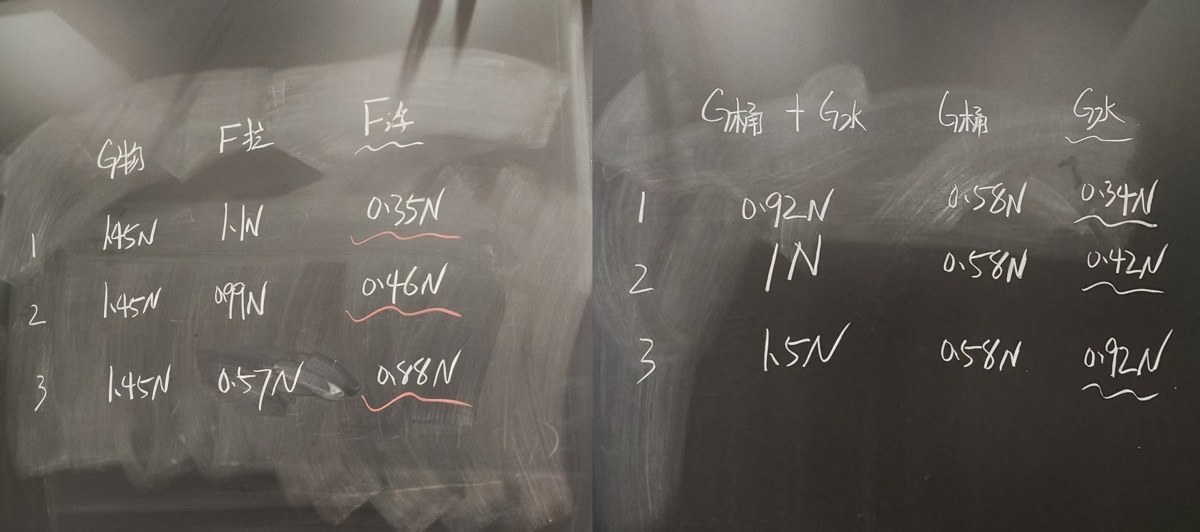 G物 F拉 F浮
1 1.45N 1.1N 0.35N
2 1.45N 0.99N 0.46N
3 1.45N 0.57N 0.88N
G桶 + G水 G桶 G水
1 0.92N 0.58N 0.34N
2 1N 0.58N 0.42N
3 1.5N 0.58N 0.92N